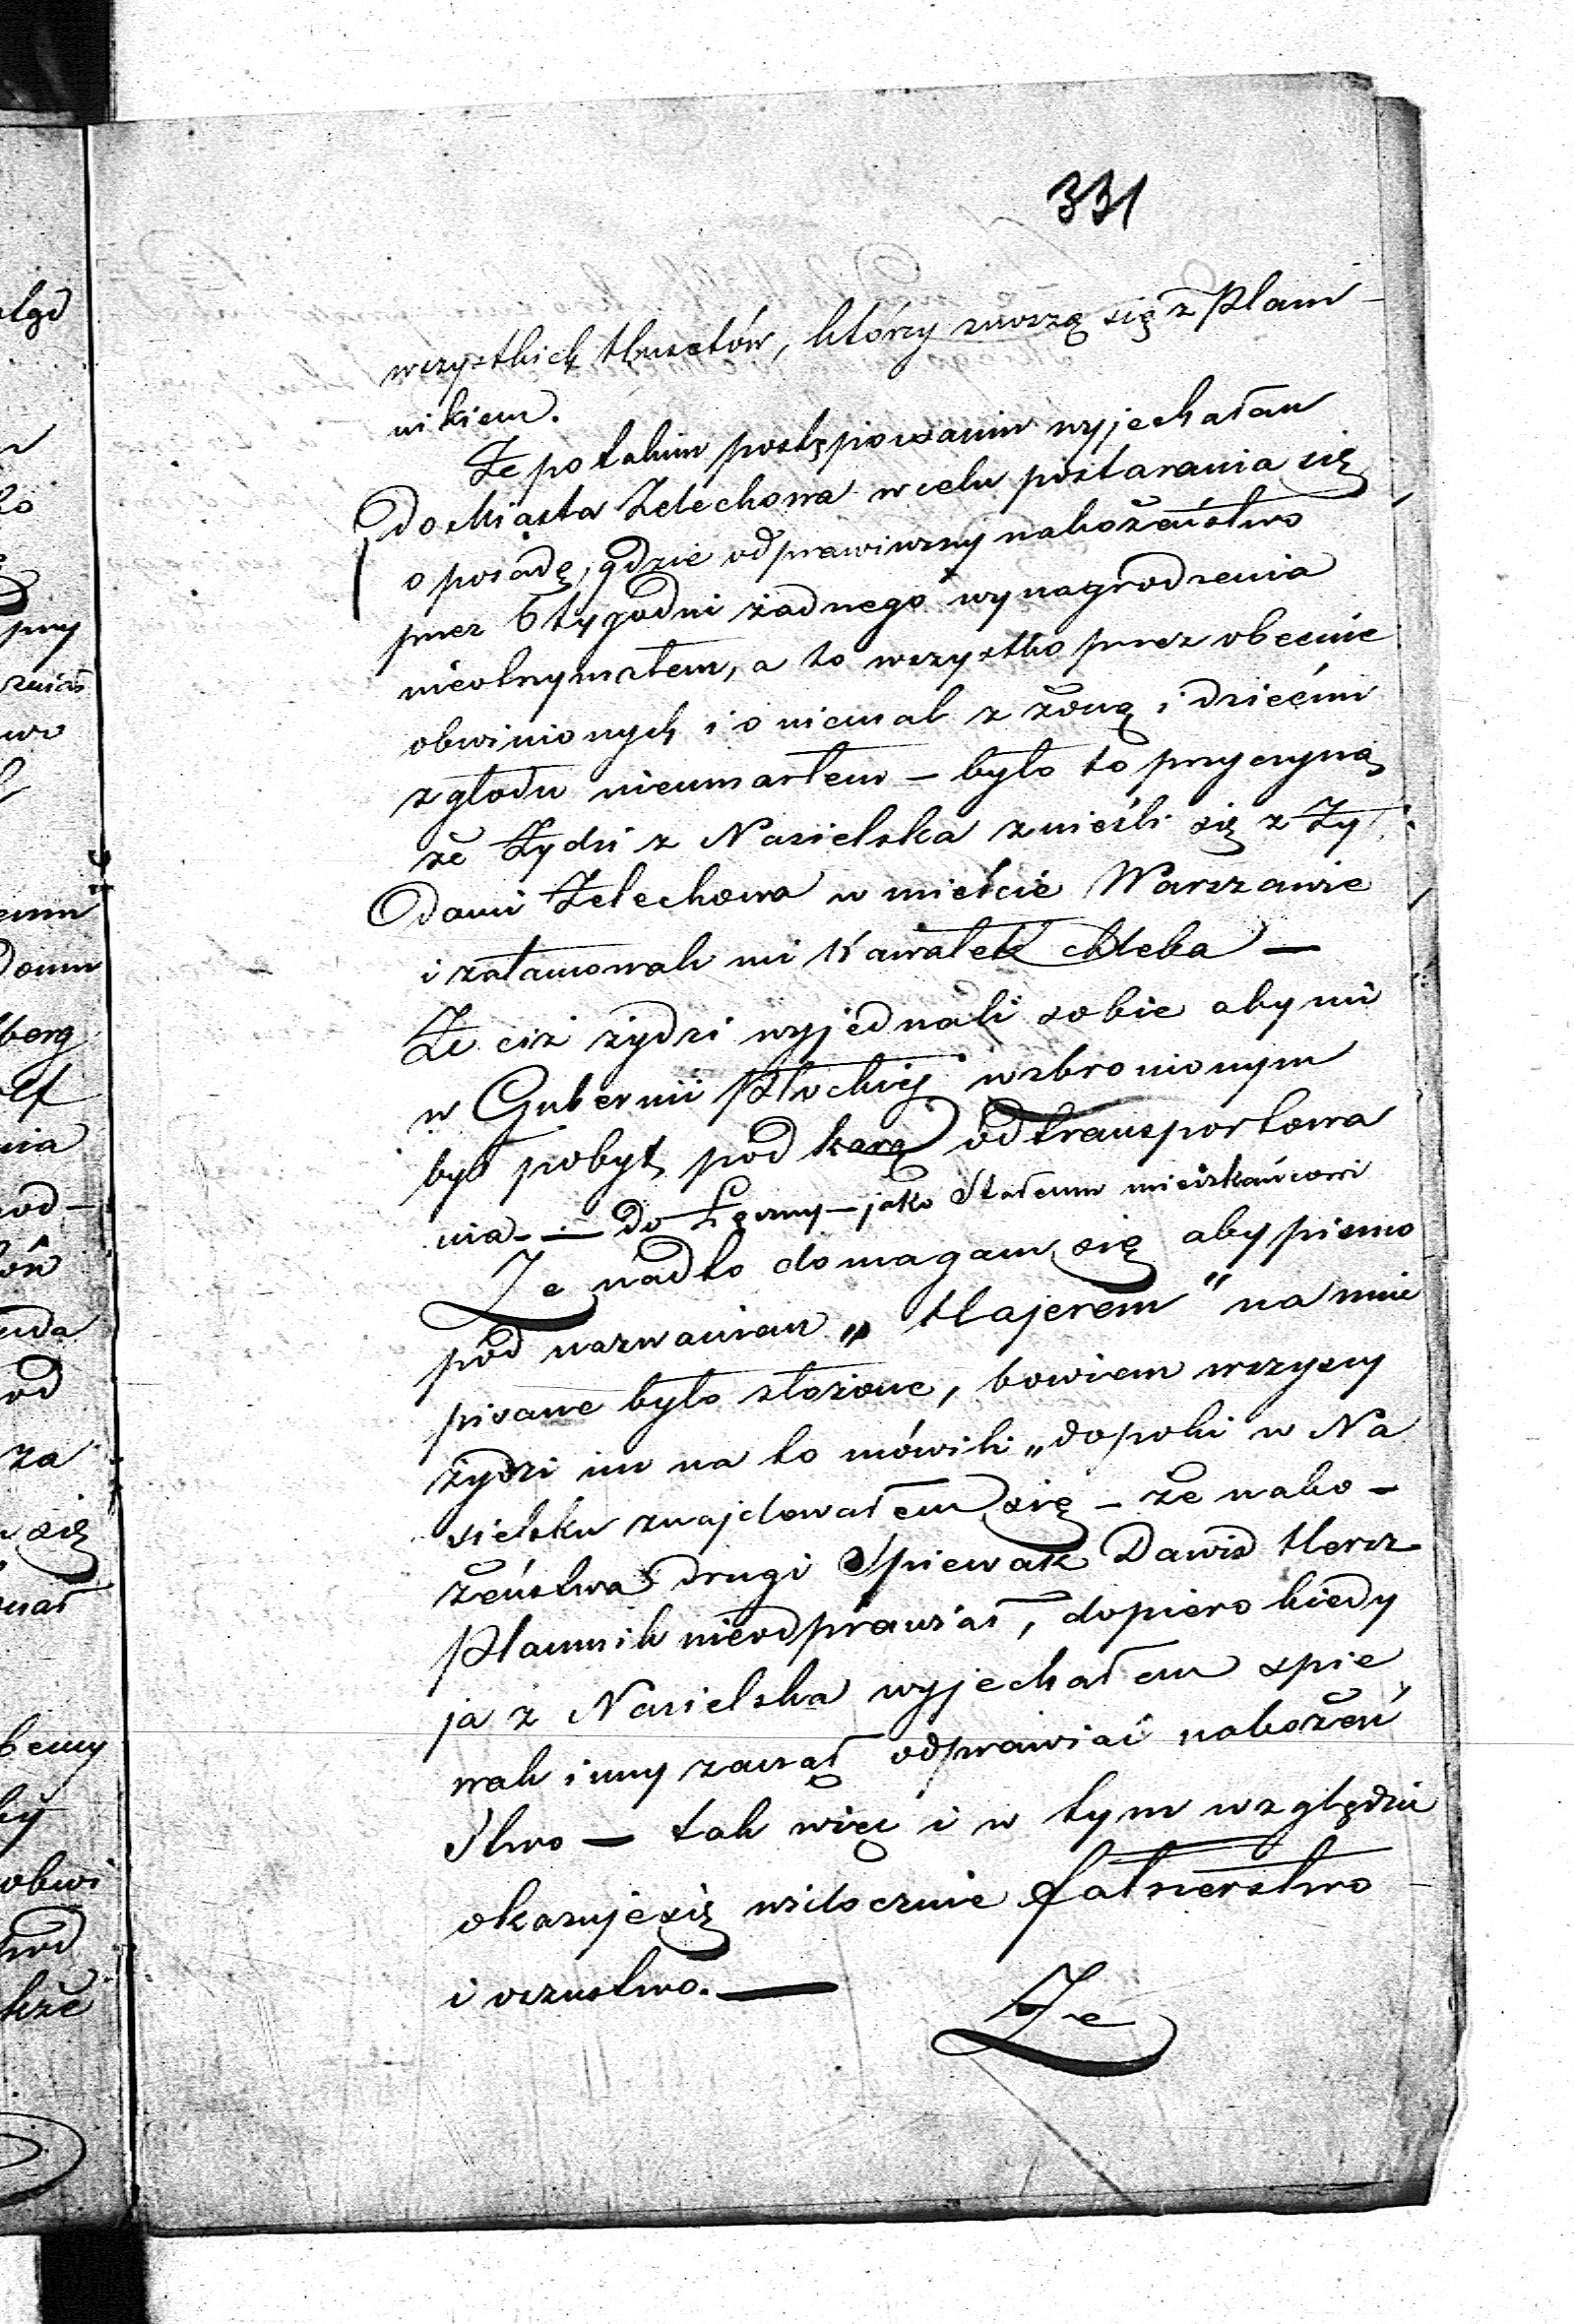 331
wszystkich tkuretów, którzy znoszą się z Płam-
nikiem.
Że po takim postępiowaniu wyjechałam
do Miasta Żelechowa w celu postarania się
o posadę, gdzie odprawiwszy nabożeństwo
przez 6 tygodni żadnego wynagrodzenia
nieotrzymałem, a to wszystko przez obecnie
obwinionych i o niemal z żoną i dziećmi
z głodu nieumarłem – było to przyczyną
że Żydzi z Nasielska znieśli się z Ży
dami Żelechowa w mieście Warszawie
i zatamowali mi Kawałek chleba —
Że ciż żydzi wyjednali sobie aby mi
w Gubernii Płockiéj wzbronionym
był pobyt pod karą odtransportowa
nia – — do Łęczny – jako Stałemu mieszkańcowi
Że nadto domagam się aby pismo
pod nazwaniem „Hajerem" na mnie
pisane było złożone, bowiem wszyscy
żydzi im na to mówili „dopoki w Na
sielsku znajdowałem się – że nabo-
żeństwa drugi Spiewak Dawid Hersz
Płamnik nieodprawiał, dopiero kiedy
ja z Nasielska wyjechałem spie
wak inny zaczął odprawiać nabożeń
stwo — tak więc i w tym względzie
okazuje się widocznie fałszerstwo
i oszustwo. —
Że